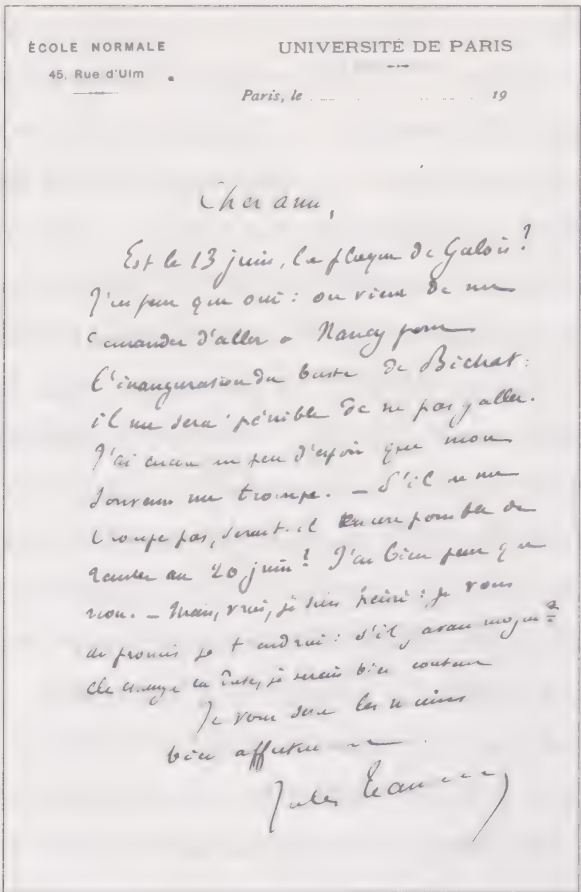 ÉCOLE NORMALE
45, Rue d'Ulm
UNIVERSITÉ DE PARIS
Paris, le 19
Cher ami,
Est-ce le 13 juin, la plaque de Galois?
J'ai peur que oui : on vient de me
demander d'aller à Nancy pour
l'inauguration du buste de Bichat :
il me sera pénible de ne pas y aller.
J'ai encore un peu d'espoir que mon
souvenir me trompe. — S'il ne me
trompe pas, serait-il encore possible de
reculer au 20 juin? J'ai bien peur que
non. — Mais, vrai, je suis peiné : je vous
ai promis je tiendrai : s'il y avait moyen
de changer la date, je serais bien content
Je vous serre les mains
bien affectueusement.
Jules Tannery